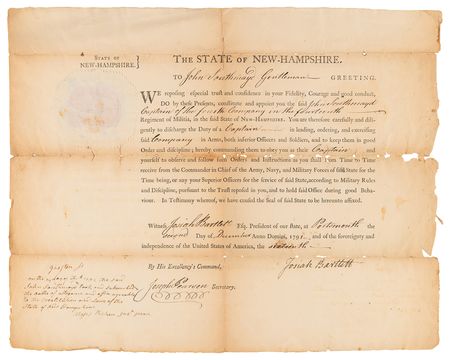 STATE OF
NEW-HAMPSHIRE.
THE STATE OF NEW-HAMPSHIRE.
TO John Southmayd Gentleman GREETING.
WE reposing especial trust and confidence in your Fidelity, Courage and good conduct,
DO by these Presents, constitute and appoint you the said John Southmayd
Captain of the fourth Company in the
Regiment of Militia, in the said State of NEW-HAMPSHIRE. You are therefore carefully and dili-
gently to discharge the Duty of a Captain in leading, ordering, and exercising
said Company in Arms, both inferior Officers and Soldiers, and to keep them in good
Order and discipline; hereby commanding them to obey you as their Captain and
yourself to observe and follow such Orders and Instructions as you shall from Time to Time
receive from the Commander in Chief of the Army, Navy, and Military Forces of said State for the
Time being, or any your Superior Officers for the service of said State, according to Military Rules
and Discipline, pursuant to the Trust reposed in you, and to hold said Office during good Beha-
viour. In Testimony whereof, we have caused the Seal of said State to be hereunto affixed.
Witness Josiah Bartlett Esq. President of our State, at Portsmouth the
Second Day of December Anno Domini, 1791 and of the sovereignty and
independence of the United States of America, the sixteenth
By His Excellency's Command,
Josiah Bartlett
Joseph Pearson Secretary.
Grafton ss
John Southmayd took and subscribed
the oaths of
to the Constitution and Laws of the
State of New Hampshire